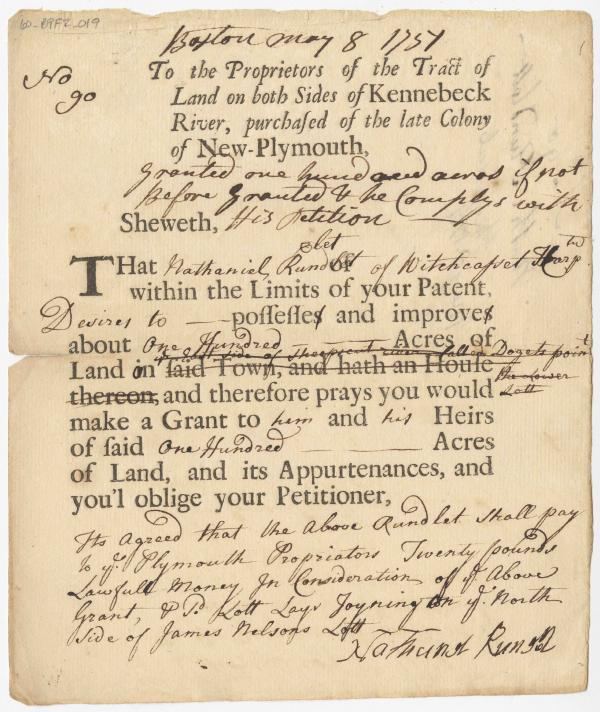 60_B9F2_019
Boston may 8 1757
No
90
To the Proprietors of the Tract of
Land on both Sides of Kennebeck
River, purchaſed of the late Colony
of New-Plymouth,
Granted one hundred acres if not
Before Granted & he Complys with
Sheweth, His Petition
let
THat Nathaniel Rund of Witchcasset
within the Limits of your Patent,
Desires to poſſeſſes and improves
about One Hundred Acres of
side of called Dogets point
Land in ſaid Town, and hath an Houſe
the lower
Lott
thereon, and therefore prays you would
make a Grant to him and his Heirs
of ſaid One Hundred Acres
of Land, and its Appurtenances, and
you'l oblige your Petitioner,
Its agreed that the Above Rundlet shall pay
to ye Plymouth Propriators Twenty pounds
Lawfull Money In Consideration of ye Above
Grant, & Sd. Lott Lays Joyning on ye North
Side of James Nelsons Lott